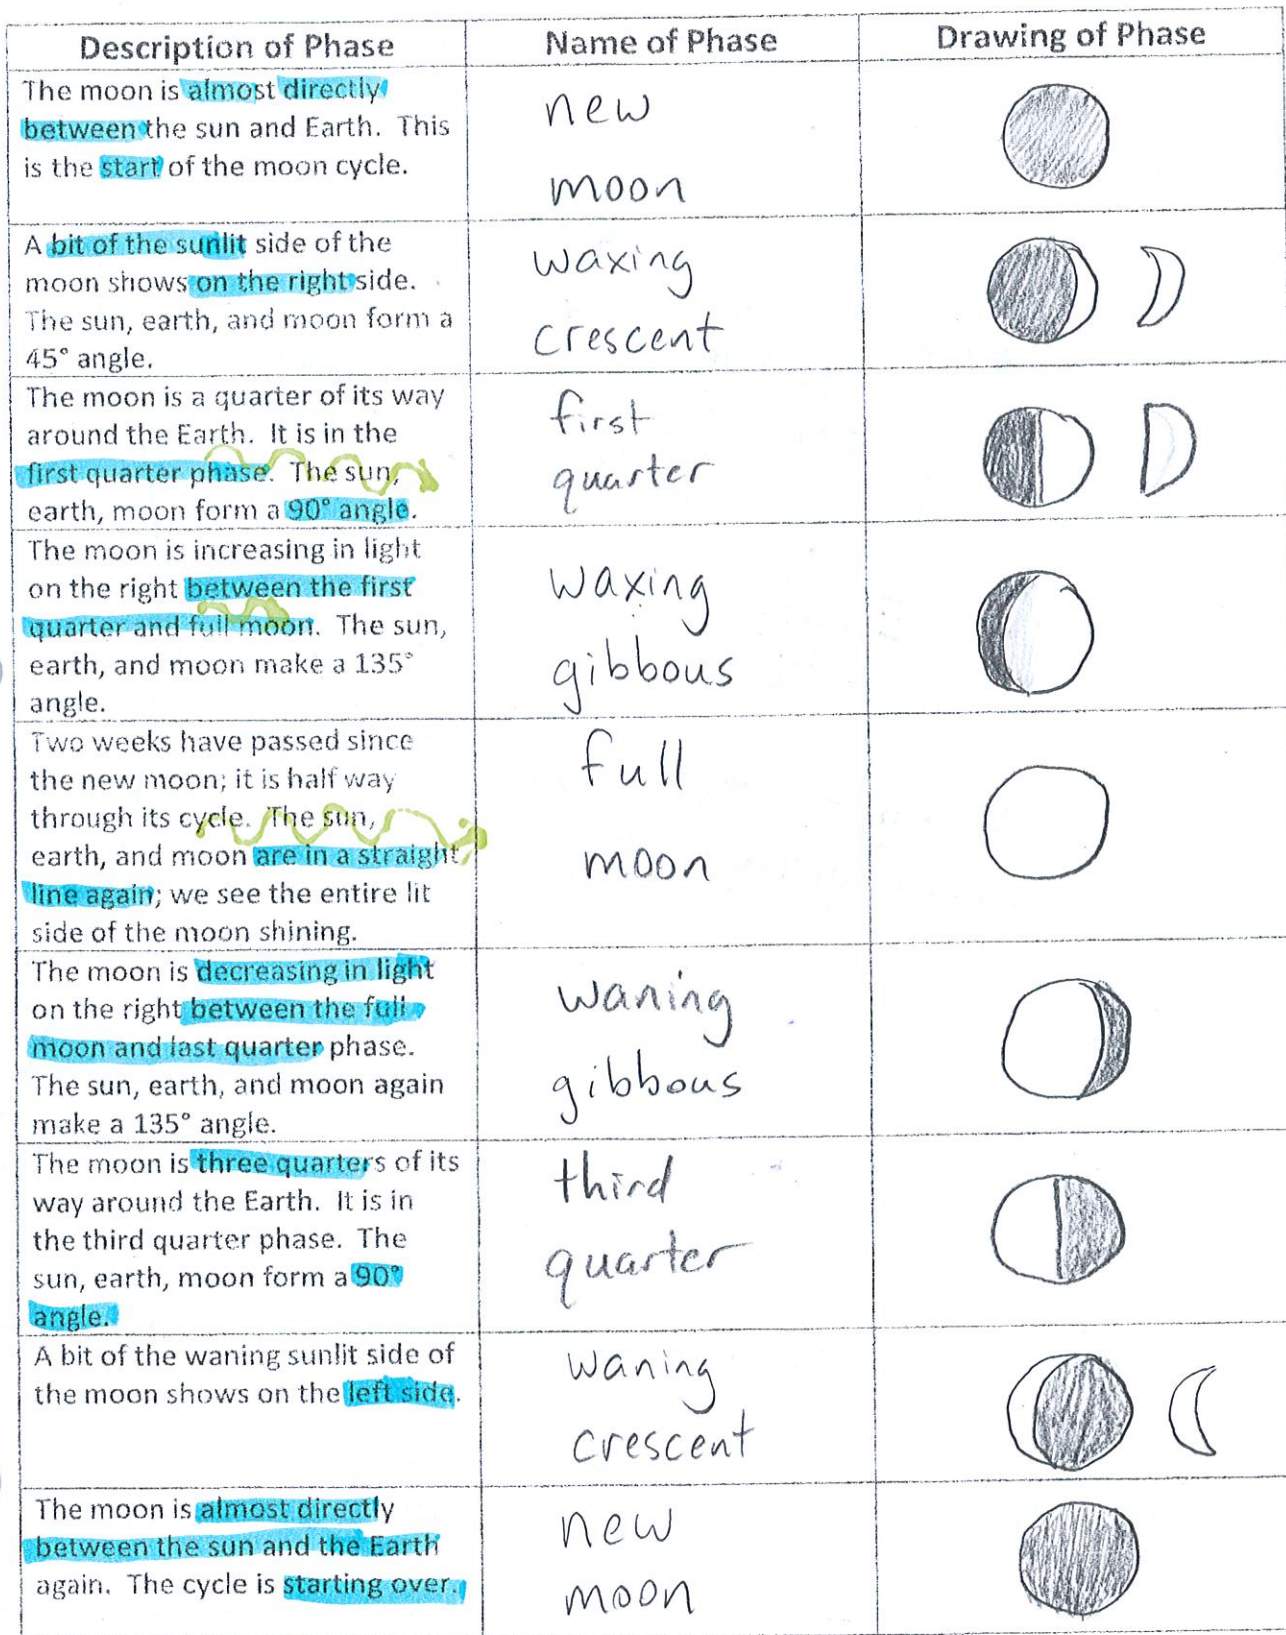 Description of Phase
Name of Phase
Drawing of Phase
The moon is almost directly
between the sun and Earth. This
is the start of the moon cycle.
new
moon
A bit of the sunlit side of the
moon shows on the right side.
The sun, earth, and moon form a
45° angle.
waxing
crescent
The moon is a quarter of its way
around the Earth. It is in the
first quarter phase. The sun,
earth, moon form a 90° angle.
first
quarter
The moon is increasing in light
on the right between the first
quarter and full moon. The sun,
earth, and moon make a 135°
angle.
waxing
gibbous
Two weeks have passed since
the new moon; it is half way
through its cycle. The sun,
earth, and moon are in a straight
line again; we see the entire lit
side of the moon shining.
full
moon
The moon is decreasing in light
on the right between the full
moon and last quarter phase.
The sun, earth, and moon again
make a 135° angle.
waning
gibbous
The moon is three quarters of its
way around the Earth. It is in
the third quarter phase. The
sun, earth, moon form a 90°
angle.
third
quarter
A bit of the waning sunlit side of
the moon shows on the left side.
waning
crescent
The moon is almost directly
between the sun and the Earth
again. The cycle is starting over.
new
moon